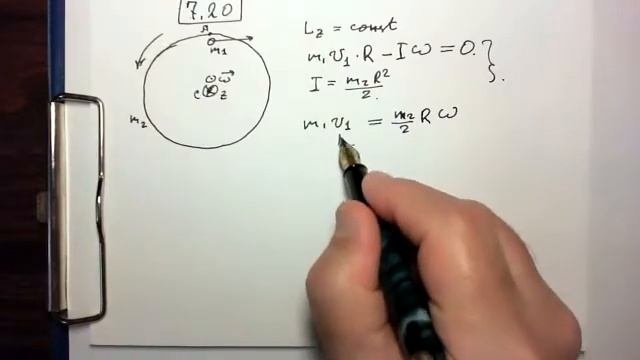 7.20
A
m₁
ω⃗
C z
m₂
L_z = const
m₁ v₁ · R - Iω = 0.
I = m₂R²/2.
m₁ v₁ = m₂/2 R ω